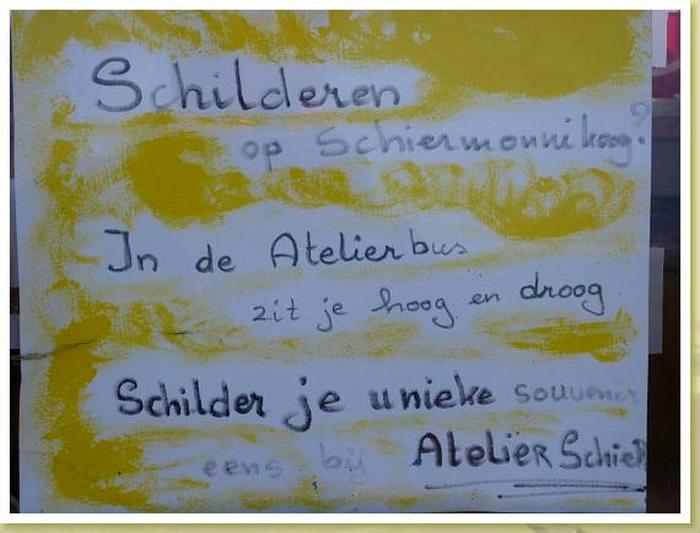 Schilderen
op Schiermonnikoog?
In de Atelierbus
zit je hoog en droog
Schilder je unieke souvenir
eens bij Atelier Schier